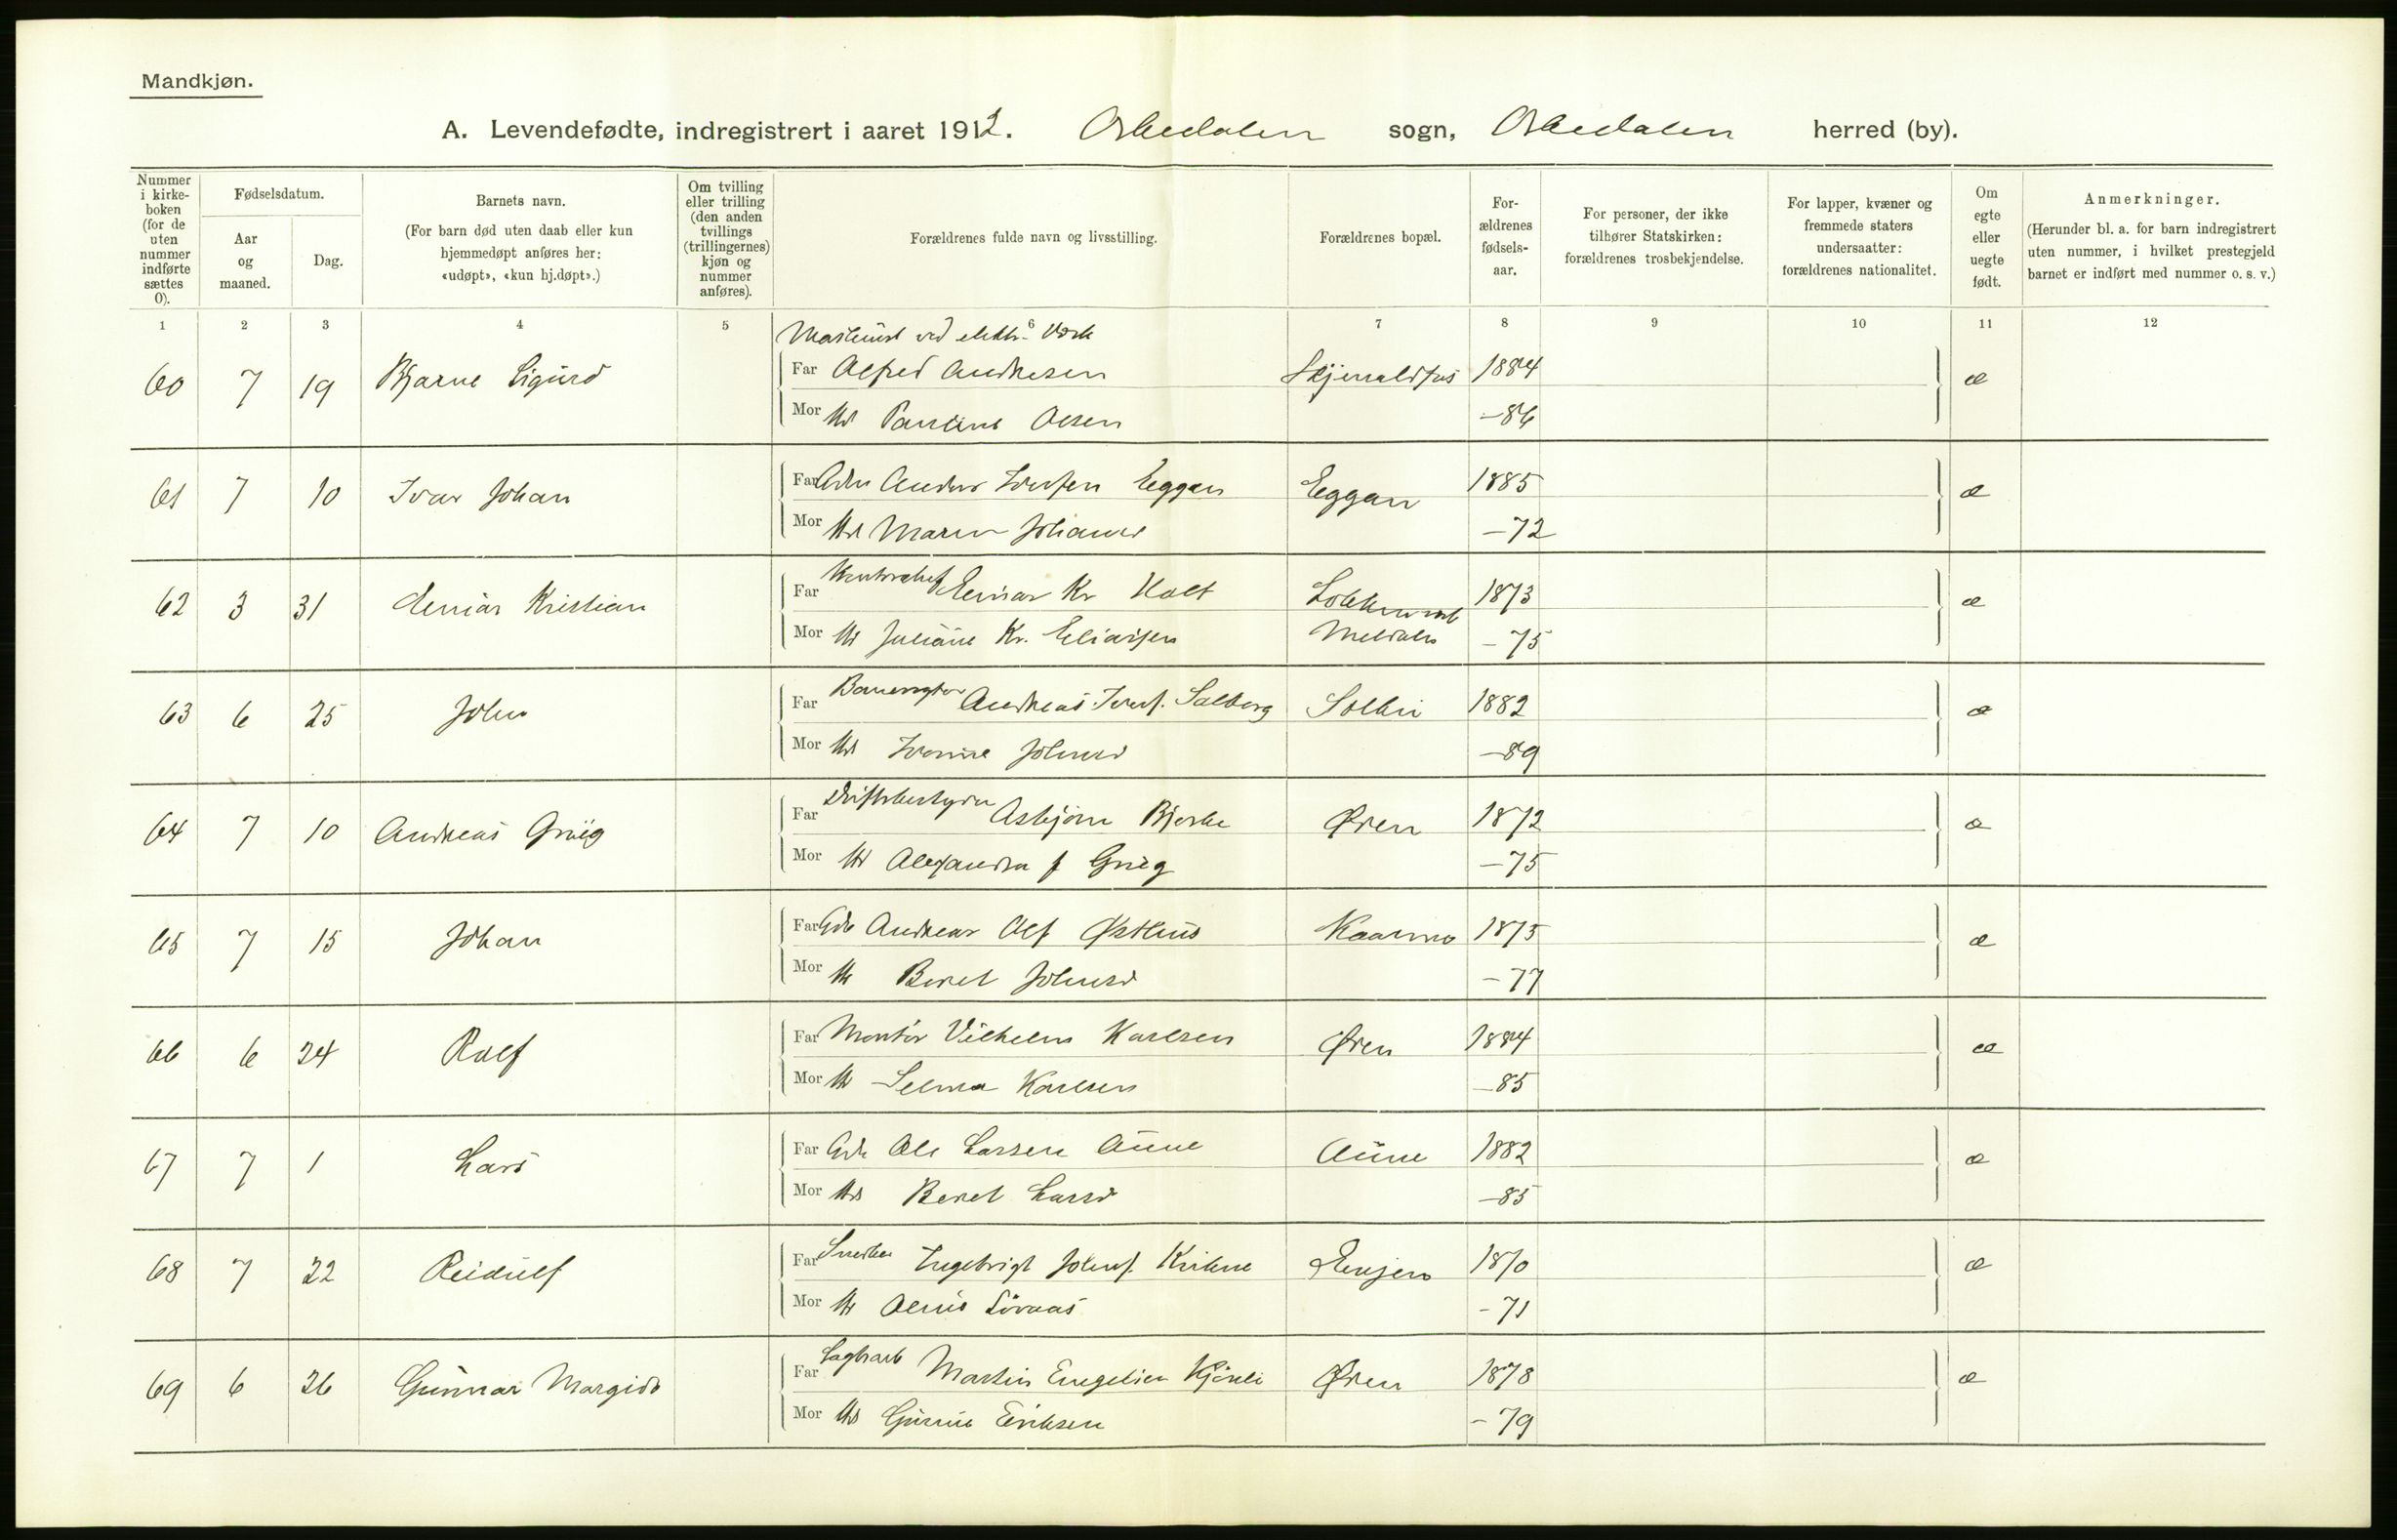 Mandkjøn.
A. Levendefødte, indregistrert i aaret 1912. Orkedalen sogn, Orkedalen herred (by).
Nummer i kirkeboken (for de uten nummer indførte sættes 0).
Fødselsdatum.
Aar og maaned.
Dag.
Barnets navn.
(For barn død uten daab eller kun hjemmedøpt anføres her: «udøpt», «kun hj.døpt».)
Om tvilling eller trilling (den anden tvillings (trillingernes) kjøn og nummer anføres).
Forældrenes fulde navn og livsstilling.
Forældrenes bopæl.
Forældrenes fødselsaar.
For personer, der ikke tilhører Statskirken: forældrenes trosbekjendelse.
For lapper, kvæner og fremmede staters undersaatter: forældrenes nationalitet.
Om egte eller uegte født.
Anmerkninger.
(Herunder bl. a. for barn indregistrert uten nummer, i hvilket prestegjeld barnet er indført med nummer o. s. v.)
1 2 3 4 5 6 7 8 9 10 11 12
Maskinist ved elektr. Værk
60 7 19 Bjarne Sigurd Far Alfred Andresen 1884 æ
Mor Pauline Olsen -86
61 7 10 Ivar Johan Far Anders Eggan Eggan 1885 æ
Mor Maren Johansd -72
62 3 31 Einar Kristian Far Einar Kr Holt Meldalen 1873 æ
Mor Juliane Kr. Eliassen -75
63 6 25 John Far Andreas Solberg 1882 æ
Mor Johnsd -89
64 7 10 Andreas Grieg Far Driftsbestyrer Asbjørn Bjerke Øren 1872 æ
Mor Alexandra f Grieg -75
65 7 15 Johan Far Andreas Olsf Østhus 1875 æ
Mor Beret Johnsd -77
66 6 24 Rolf Far Montør Vilhelm Karlsen Øren 1884 æ
Mor Selma Karlsen -85
67 7 1 Lars Far Ole Larsen Aune Aune 1882 æ
Mor Beret Larsd -85
68 7 22 Reidulf Far Snedker Ingebrigt Johnsf. 1870 æ
Mor -71
69 6 26 Gunnar Margido Far Martin Øren 1878 æ
Mor Eriksen -79